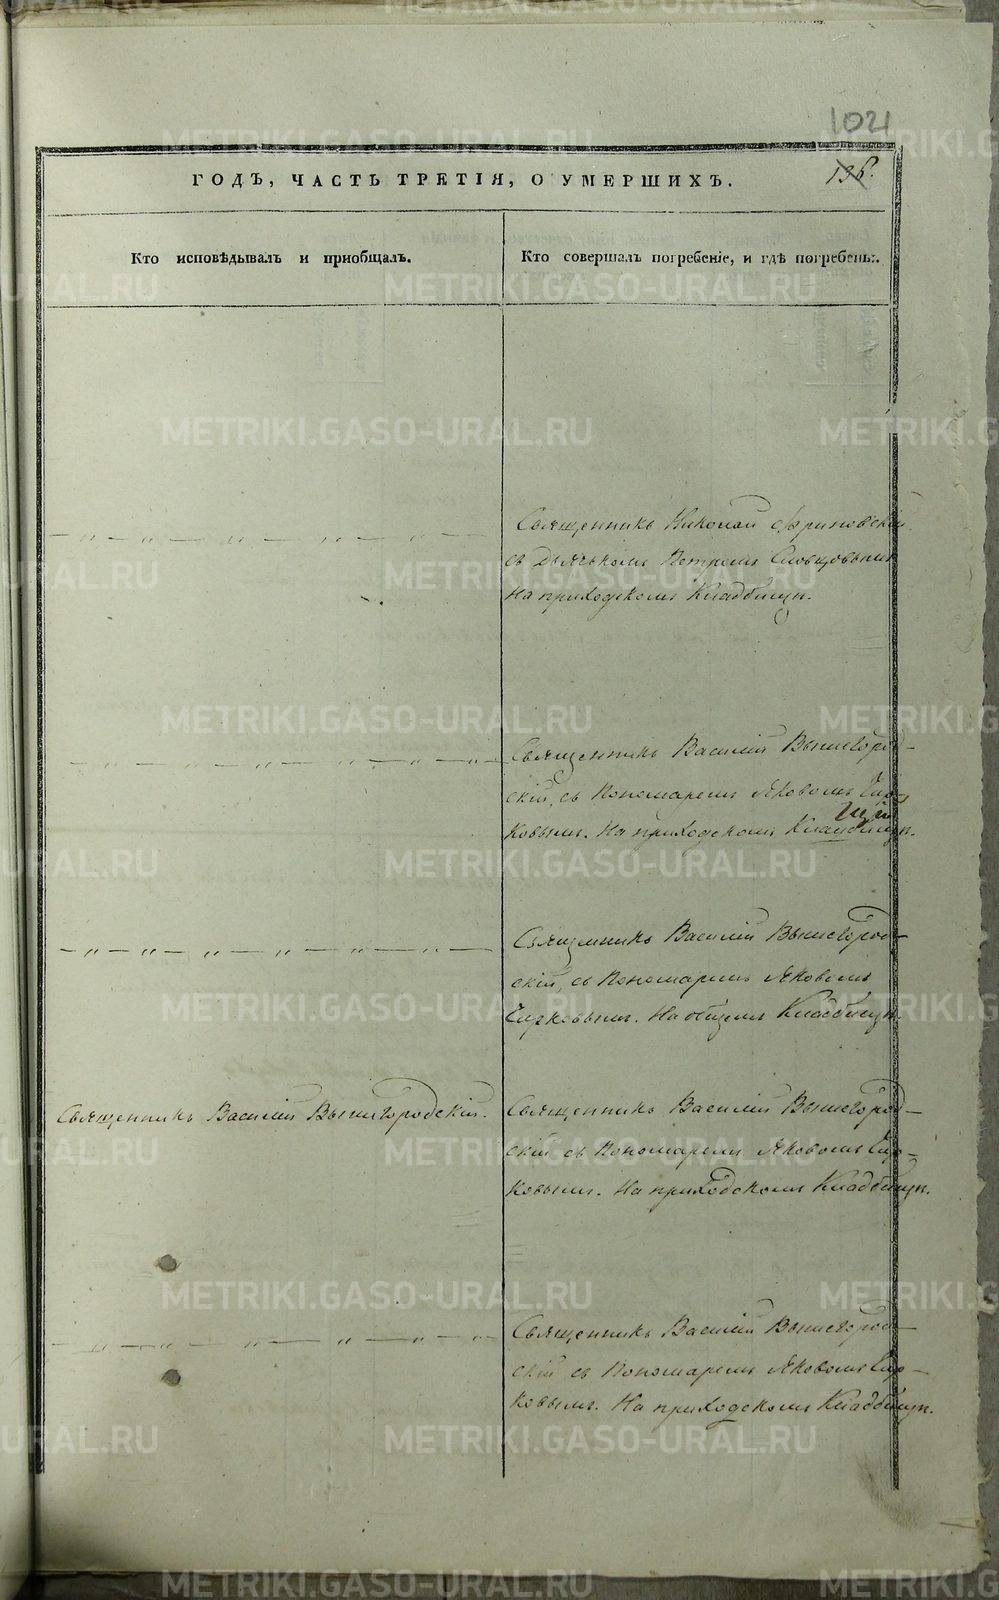 1021
136.
ГОДЪ, ЧАСТЬ ТРЕТІЯ, О УМЕРШИХЪ.
Кто исповѣдывалъ и пріобщалъ.
Кто совершалъ погребеніе, и гдѣ погребены.
Священникъ Николай
съ Дьячкомъ Петромъ Словцовымъ
На приходскомъ Кладбищѣ.
Священникъ Василій Вышегород-
скій, съ Пономаремъ Яковомъ Чир-
ковымъ. На приходскомъ Кладбищѣ.
Священникъ Василій Вышегород-
скій, съ Пономаремъ Яковомъ
Чирковымъ. На общемъ Кладбищѣ.
Священникъ Василій Вышегородскій.
Священникъ Василій Вышегород-
скій съ Пономаремъ Яковомъ Чир-
ковымъ. На приходскомъ Кладбищѣ.
Священникъ Василій Вышегород-
скій съ Пономаремъ Яковомъ Чир-
ковымъ. На приходскомъ Кладбищѣ.
METRIKI.GASO-URAL.RU